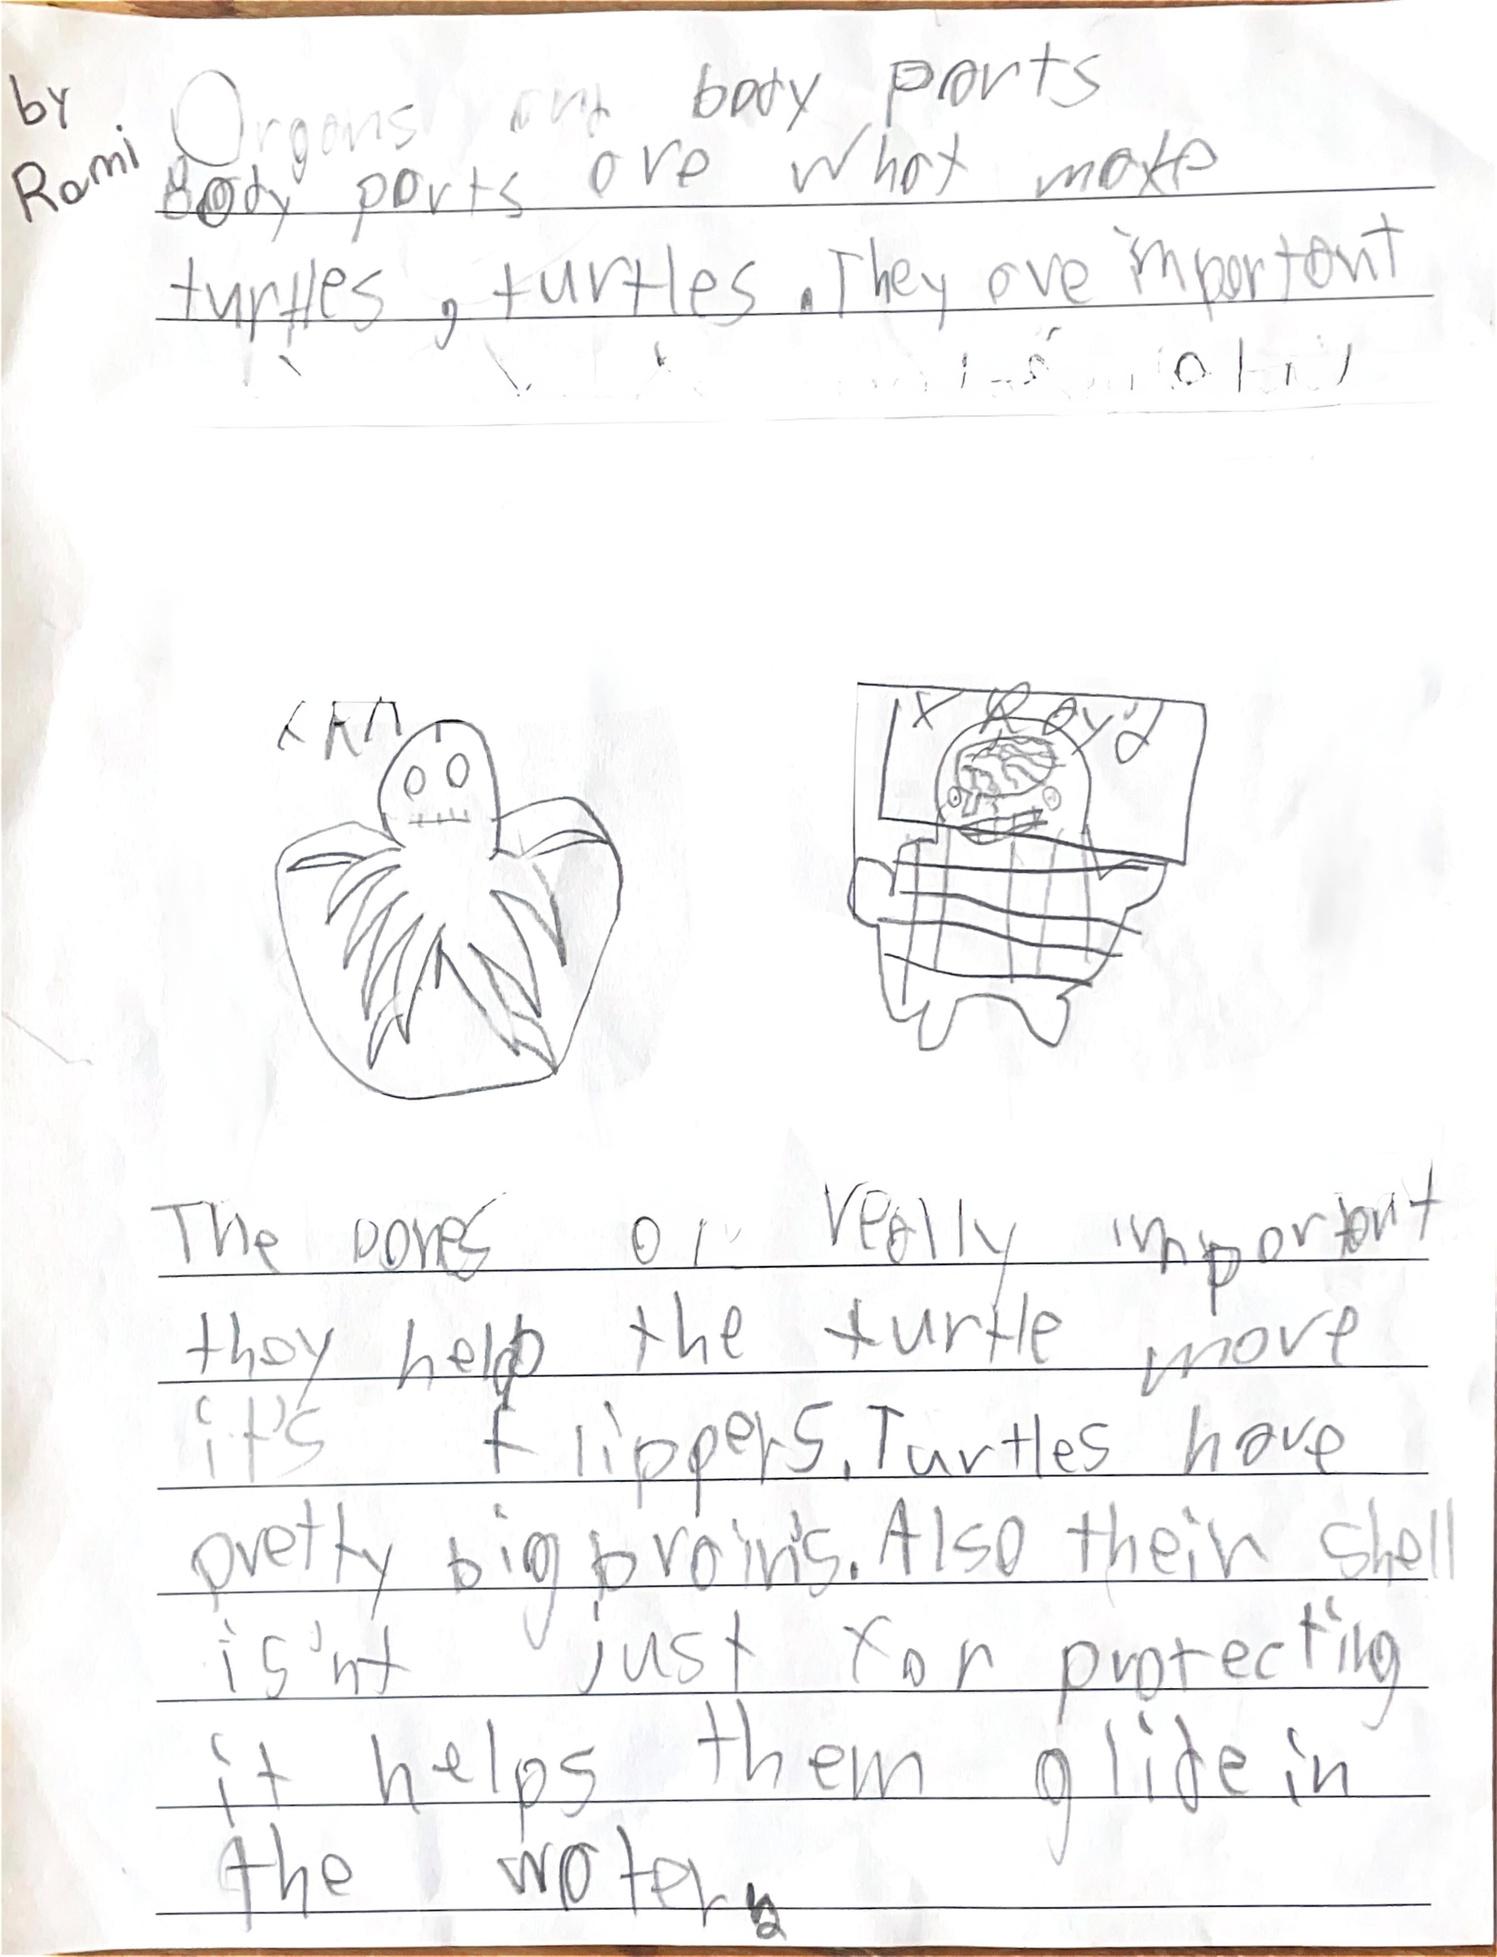 by
Rami
Organs and body parts
Body parts are what make
turtles, turtles. They are important
X Ray'd
The bones are really important
they help the turtle move
it's flippers. Turtles have
pretty big brain's. Also their shell
is'nt just for protecting
it helps them glide in
the water.